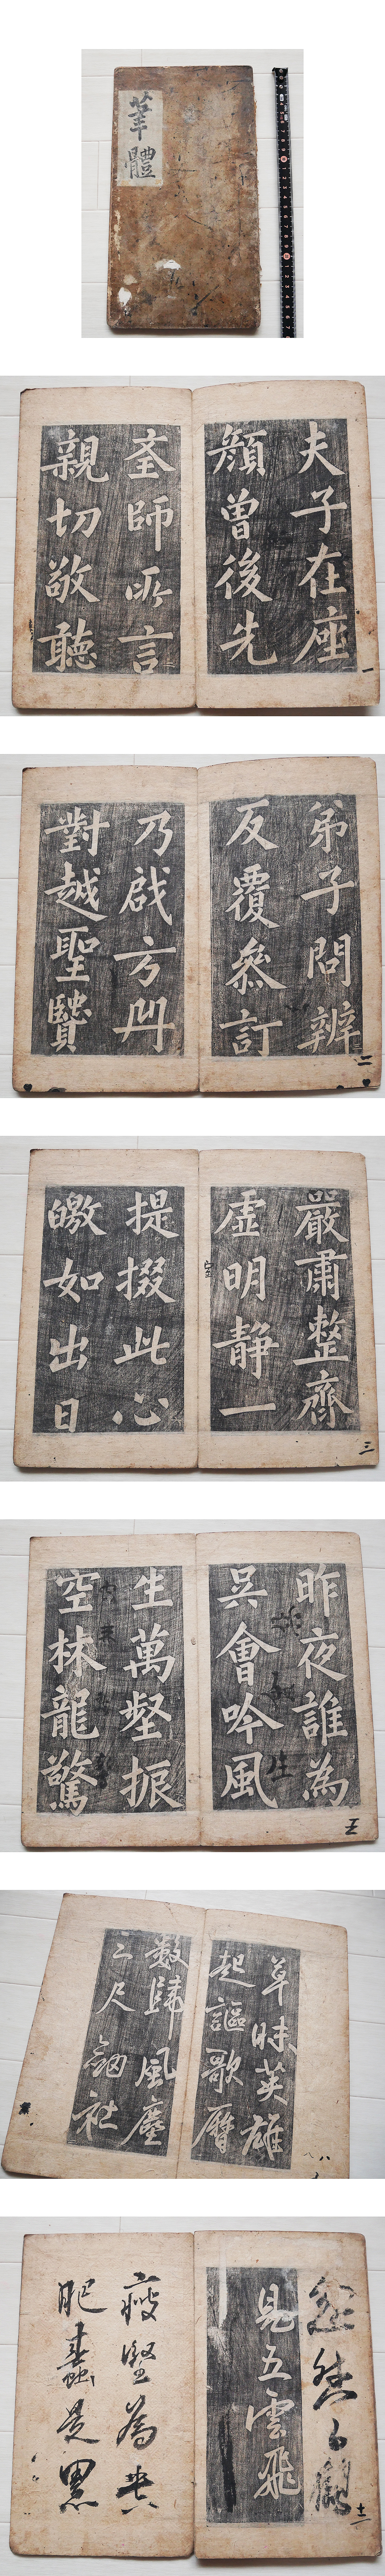 筆體
夫子在座
顔曾後先
聖師所言
親切敬聽
一
弟子問辨
反覆叅訂
乃啟方冊
對越聖賢
二
嚴肅整齊
虛明靜一
提掇此心
皦如出日
三
昨夜誰為
吳會吟風
生萬壑振
空林龍驚
五
草昧英雄
起謳歌曆
數歸風塵
三尺劒社
八
見五雲飛
十一
瘦堅為
肥蠹是黑